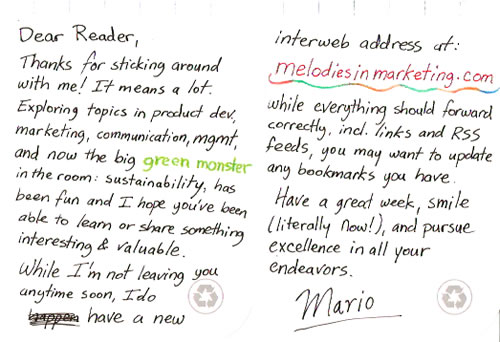 Dear Reader,
Thanks for sticking around
with me! It means a lot.
Exploring topics in product dev,
marketing, communication, mgmt,
and now the big green monster
in the room: sustainability, has
been fun and I hope you've been
able to learn or share something
interesting & valuable.
While I'm not leaving you
anytime soon, I do
have a new
interweb address at:
melodiesinmarketing.com
while everything should forward
correctly, incl. links and RSS
feeds, you may want to update
any bookmarks you have.
Have a great week, smile
(literally now!), and pursue
excellence in all your
endeavors.
Mario